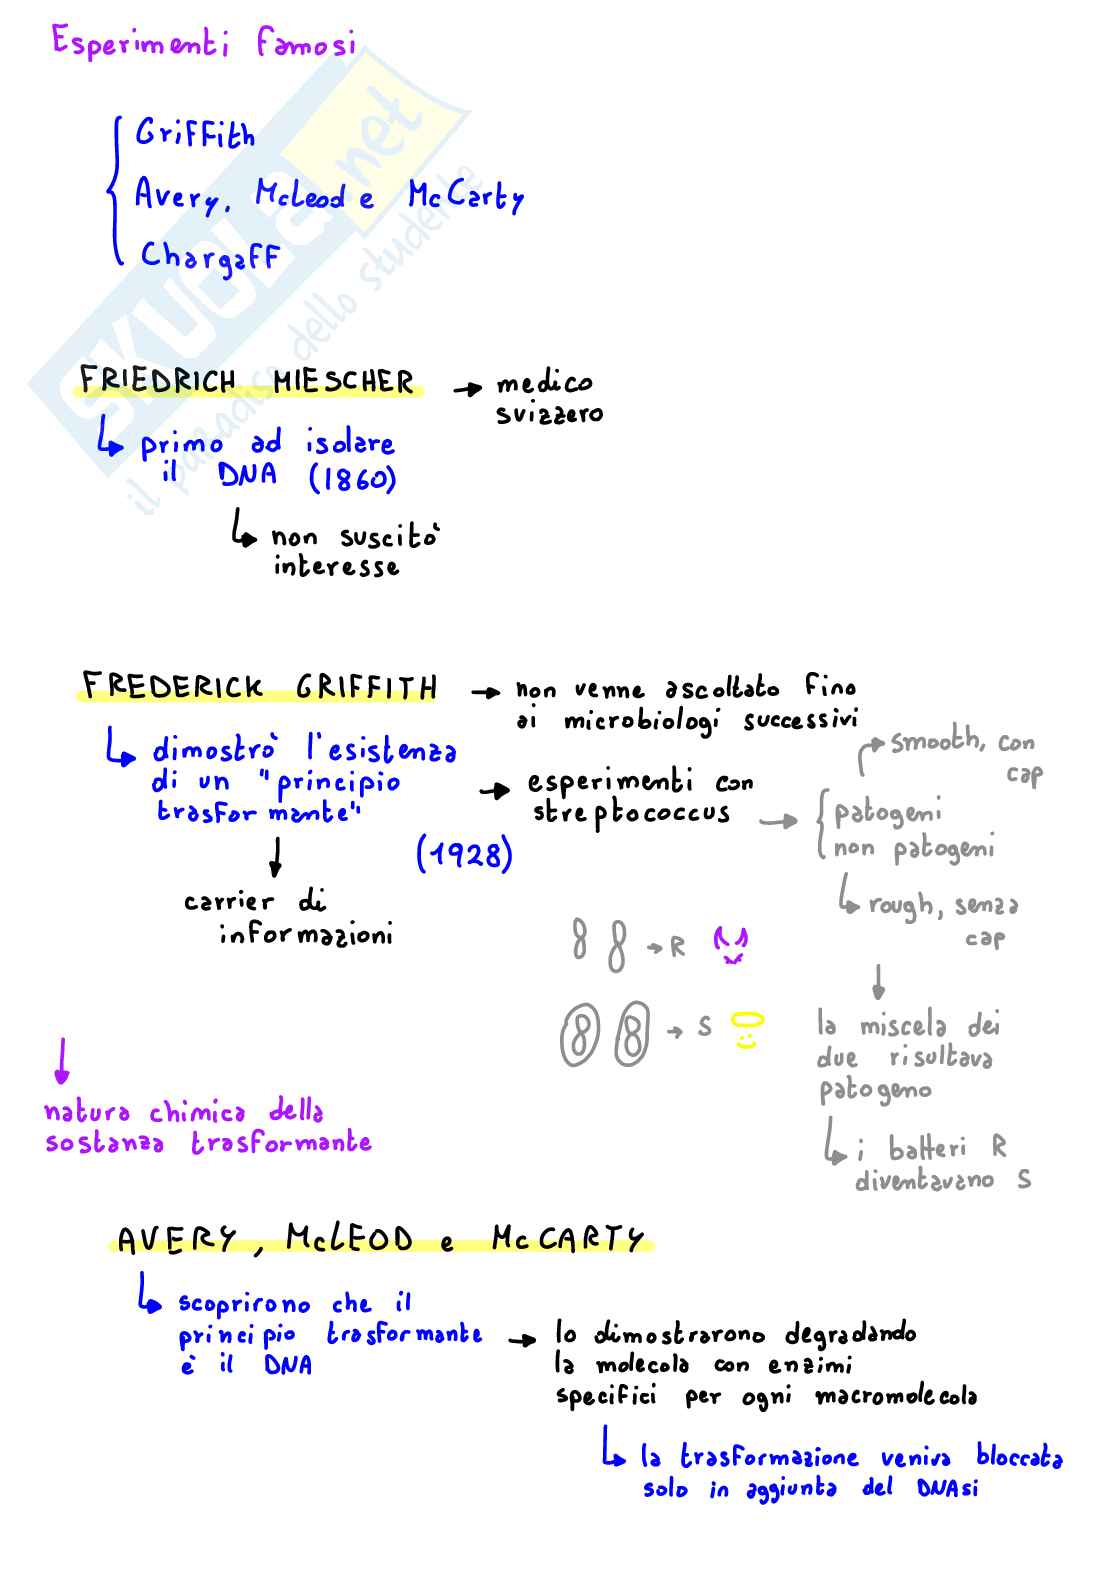 Esperimenti famosi
Griffith
Avery, McLeod e McCarty
Chargaff
SKUOLA.net
il paradiso dello studente
FRIEDRICH MIESCHER → medico
svizzero
primo ad isolare
il DNA (1860)
non suscitò
interesse
FREDERICK GRIFFITH → non venne ascoltato fino
ai microbiologi successivi
dimostrò l'esistenza
di un "principio
trasformante"
(1928)
carrier di
informazioni
esperimenti con
streptococcus
smooth, con
cap
patogeni
non patogeni
rough, senza
cap
→ R
→ S
la miscela dei
due risultava
patogeno
i batteri R
diventavano S
natura chimica della
sostanza trasformante
AVERY, McLEOD e McCARTY
scoprirono che il
principio trasformante
è il DNA
lo dimostrarono degradando
la molecola con enzimi
specifici per ogni macromolecola
la trasformazione veniva bloccata
solo in aggiunta del DNAsi